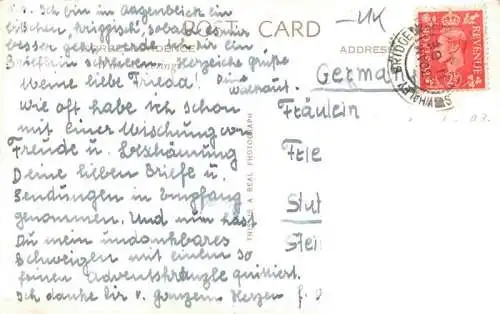 P.S. Ich bin im Augenblick ein
bißchen „krüppisch", sobald es mir
besser geht, werde ich Dir ein
Brieflein schreiben. Herzliche Grüße
Deine
Waltraut.
POST CARD
CORRESPONDENCE
ADDRESS
-UK
Meine liebe Frieda!
Wie oft habe ich schon
mit einer Mischung von
Freude u. Beschämung
Deine lieben Briefe u.
Sendungen in Empfang
genommen. Und nun hast
Du mein undankbares
Schweigen mit einem so
feinen Adventskränzle quittiert.
Ich danke Dir v. ganzem Herzen f. D
THIS IS A REAL PHOTOGRAPH
Germany
Fräulein
Frie
Stut
Stei
REVENUE
WHALEY BRIDGE